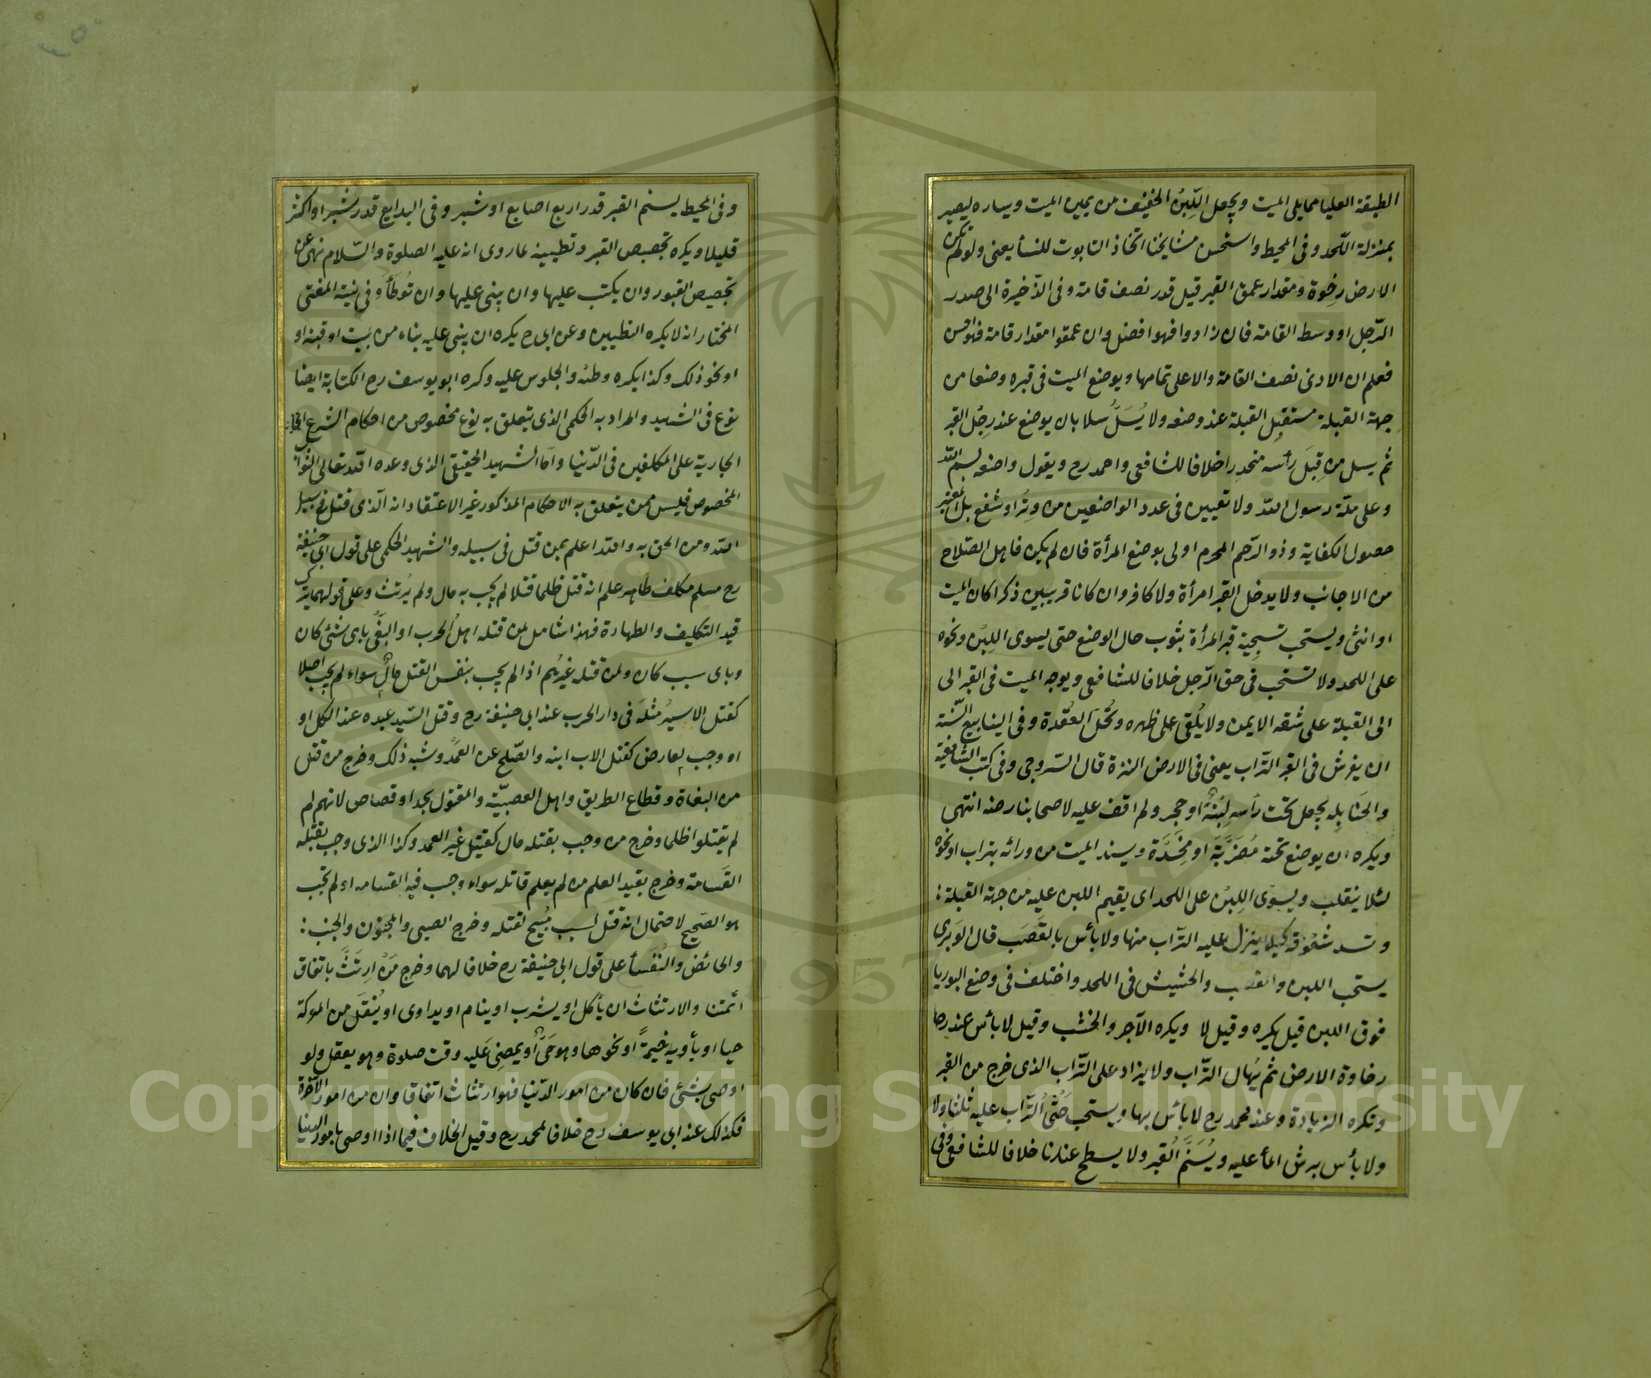 الطبقة العليا مما يلي الميت ويجعل اللّبن الخفيف من يمين الميت ويساره ليصير
بمنزلة اللّحد وفى المحيط واستحسن مشايخنا اتخاذ التابوت للنسأ يعنى ولو لم تكن
الارض رخوة ومقدار عمق القبر قيل قدر نصف قامة وفى الذّخيرة الى صدر
الرّجل او وسط القامة فان زادوا فهو افضل وان عمقوا مقدار قامة فهو احسن
فعلم ان الادنى نصف القامة والاعلى تمامها ويوضع الميت فى قبره وضعا من
جهة القبلة مستقبِل القبلة عند وضعه ولا يُسَلُّ سلا بان يوضع عند رِجْل القبر
ثم يسل من قِبَل رأسه منحدرا خلافا للشافعى واحمد رح ويقول واضعه بسم اللّه
وعلى ملة رسول اللّه ولا تعيين فى عدد الواضعين من وتر او شفع بل المعتبر
حصول الكفاية وذو الرّحم المحرم اولى بوضع المرأة فان لم يكن فاهل الصّلاح
من الاجانب ولا يدخل القبر امرأة ولا كافر وان كانا قريبين ذكرا كان الميت
او انثى ويستحب تسجية قبر المرأة بثوب حال الوضع حتى يسوى اللبِن ونحوه
على اللحد ولا تستحب فى حق الرّجل خلافا للشافعى ويوجه الميت فى القبر الى
الى القبلة على شقه الايمن ولا يُلقى على ظهره وتُحَل العُقْدة وفى الينابيع السّنة
ان يفرش فى القبر التّراب يعنى فى الارض النزة قال السّروجى وفى كتب الشافعية
والحنابِله يجعل تحت رأسه لَبِنَةٌ او حجر ولم اقف عليه لاصحابنا رحمه انتهى
ويكره ان يوضع تحته مُضَرَّبَة او مِخَدَّة ويسند الميت من ورائه بتراب او نحوه
لئلا ينقلب ويسوى اللبِن على اللحد اى يقيم اللبن عليه من جهة القبلة :
وتسد شقوقه كيلا ينزل عليه التّراب منها ولا بأس بالقَصَب قال الوبرى
يستحب اللبن والقصب والحشيش فى اللحد واختلف فى وضع البوريا
فوق اللبن قيل يكره وقيل لا ويكره الآجر والخشب وقيل لا بأس عند رخا
رخاوة الارض ثم يُهال التّراب ولا يزاد على التّراب الذى خرج من القبر
وتكره الزيادة وعند محمد رح لا بأس بها ويستحب حَثْىُ التّراب عليه ثلثا ولا
ولا بأس برش المأ عليه ويُسَنَّم القبر ولا يسطح عندنا خلافا للشافعى وفى
وفى المحيط يسنم القبر قدر اربع اصابع او شبر وفى البدايع قدر شبر او اكثر
قليلا ويكره تجصيص القبر وتطيينه لما روى انه عليه الصلوة والسّلام نهى عن
تجصيص القبور وان يكتب عليها وان يبنى عليها وان تُوطَأَ وفى منية المفتى
المختار انه لا يكره التطيين وعن ابى ح يكره ان يبنى عليه بناء من بيت او قبة او
او نحو ذلك وكذا يكره وطئه والجلوس عليه وكره ابو يوسف رح الكتابة ايضا
نوع فى الشهيد والمراد به الحكمى الذى يتعلق به نوع مخصوص من احكام الشرع
الجارية على المكلفين فى الدّنيا وامّا الشهيد الحقيقى الذى وعده اللّه تعالى الثواب
المخصوص فليس ممن يتعلق به الاحكام المذكور غير الاعتقاد انه الّذى قتل فى سبيل
اللّه ومن الحق به واللّه اعلم بمن قتل فى سبيله والشهيد الحكمى على قول ابى حنيفة
رح مسلم مكلف طاهر علم انه قتل ظلما قتلا لم يجب به مال ولم يُرتث وعلى قولهما يترك
قيد التكليف والطهارة فهذا شامل لمن قتله اهل الحرب او البغى باى شئ كان
وباى سبب كان ولمن قتله غيرهم اذا لم يجب بنفس القتل مالٌ سواء لم يجب اصلا
كقتل الاسير مثلَه فى دار الحرب عند ابى حنيفة رح وقتل السّيد عبده عند الكل او
او وجب لعارض كقتل الاب ابنه والصّلح عن العمد وشبه ذلك وخرج من قتل
من البغاة وقطاع الطريق واهل العصبيّة والمقتول بحد او قصاص لانهم لم
لم يقتلوا ظلما وخرج من وجب بقتله مال كقتيل غير العمد وكذا الذى وجب بقتله
القسامة وخرج بقيد العلم من لم يعلم قاتله سواء وجب فيه القسامه او لم تجب
هو الصّحيح لاحتمال انه قتل لسبب مُبيح لقتله وخرج الصبى والمجنون والجنب :
والحائض والنُفَسأ على قول ابى حنيفة رح خلافا لهما وخرج مَن ارتَثَّ باتفاق
ائمتنا والارتثاث ان يأكل او يشرب او ينام او يداوى او يُنقَل من المعركة
حيا او يأويه خيمةً او نحوها وهو حَىٌّ او يمضى عليه وقت صلوة وهو يعقل ولو
اوصى بشئ فان كان من امور الدّنيا فهو ارتثاث اتفاقا وان من امور الآخرة
فكذلك عند ابى يوسف رح خلافا لمحمد رح وقيل الخلاف فيما اذا اوصى بامور الدنيا
Copyright © King Saud University
1957